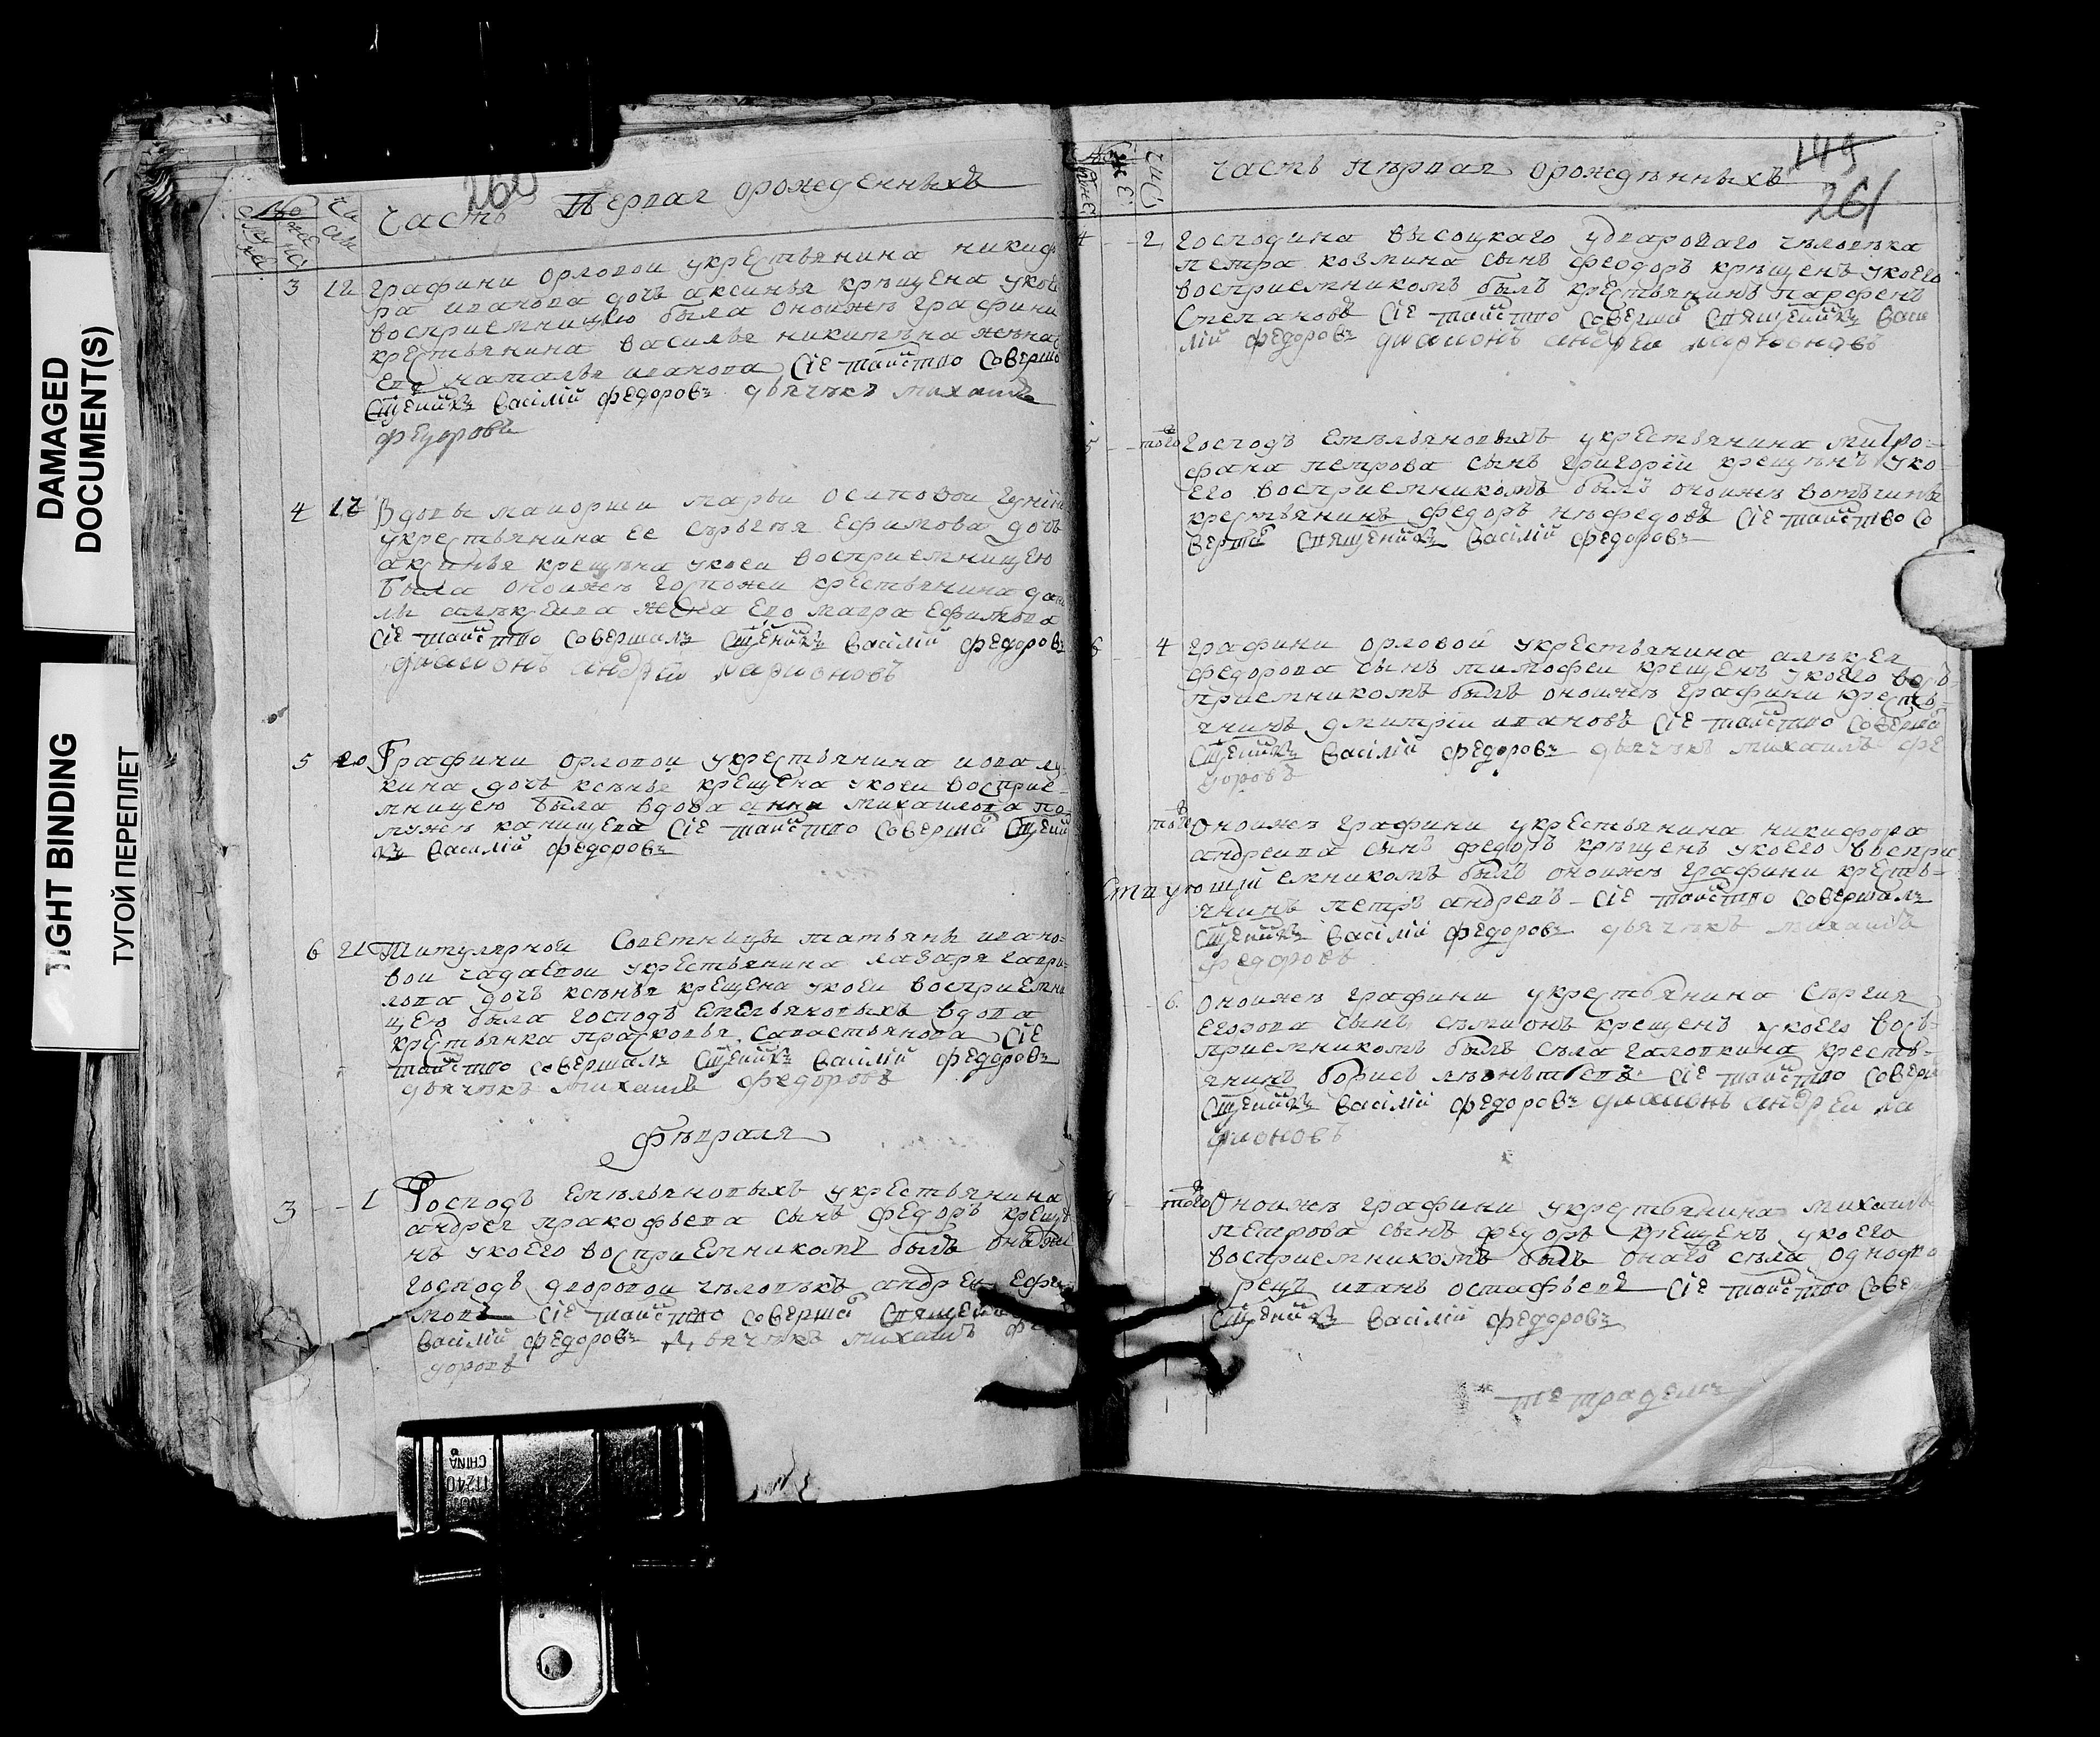 DAMAGED
DOCUMENT(S)
TIGHT BINDING
ТУГОЙ ПЕРЕПЛЕТ
260
Часть Первая орожденныхъ
3 12 Графини орловои укрестьянина никиф
ра иванова дочь аксинья крѣщена укое
восприемницею была оноижѣ графини
крестьянина василья никитѣна жѣна
Ево наталья иванова Сїе таиство Соверши
Сщеникъ Васілій Федоровъ дьячѣкъ михаилъ
федоровъ
4 17 Вдовы маиорши марьи осиповои
укрестьянина ее Сѣргѣя Ефимова дочь
акулинья крещѣна укоеи восприемницею
Была оноижѣ госпожи крестьянина дани
лы алѣкѣева жена Ево мавра Ефимова
Сїе таиство Совершалъ Сщеникъ Васілій Федоровъ
диаконъ андрей ларионовъ
5 20 Графини орловои укрестьянина иова лу-
кина дочь ксѣнья крещена укоеи восприе-
мницею была вдова анна михаилова по-
мужѣ канищева Сїе таиство Соверша Сщени
къ Василій Федоровъ
6 21 Титулярнои Советницы татьяны ивано-
вои чадаевои укрестьянина лазаря гаври-
лова дочь ксѣнья крещена укоеи восприемни
цею была господъ Емельяновыхъ вдова
крестьянка прасковья савастьянова Сїе
таиство Совершалъ Сщеникъ Васілій Федоровъ
дьячѣкъ михаилъ федоровъ
Фѣвраля
3 1 Господъ Емѣльяновыхъ укрестьянина
андрея пракофьева сынъ федоръ креще
нъ укоего восприемникомъ былъ
господъ дворовои чѣловѣкъ андреи Ефи
мовъ Сїе таиство Соверша Священи
Васілій Федоровъ дьячѣкъ михаилъ фе
доровъ
149
261
Часть пѣрвая орождѣнныхъ
4 2 Господина высоцкаго удвароваго чѣловѣка
петра козмина сынъ феодоръ крѣщенъ укоего
восприемникомъ былъ крестьянинъ парфенъ
Степановъ Сїе таиство Соверши Священикъ Васи
лій Федоровъ диаконъ андреи ларионовъ
5 того Господъ Емѣльяновыхъ укрестьянина митро-
фана петрова сынъ григорїи крещѣнъ уко-
его восприемникомъ былъ оноижѣ вотчины
крестьянинъ федоръ нѣфедовъ Сїе таиство Со
верша Священикъ Васілій Федоровъ
6 4 Графини орловой укрестьянина алѣкѣя
федорова сынъ тимофеи крещенъ укоего вос-
приемникомъ былъ оноижѣ графини кресть-
янинъ дмитріи ивановъ Сїе таиство Соверша
Сщеникъ Васілій Федоровъ дьячѣкъ михаилъ фе
доровъ
того Оноижѣ графини укрестьянина никифора
андреива сынъ федотъ крѣщенъ укоего воспри
емникомъ былъ оноижѣ графини кресть-
янинъ петръ андревъ Сїе таиство Совершалъ
Сщеникъ Васілій Федоровъ дьячѣкъ михаилъ
федоровъ
6 Оноижѣ графини укрестьянина Сѣргия
Егорова сынъ сѣмионъ крещенъ укоего вос-
приемникомъ былъ сѣла галовкина кресть-
янинъ борисъ лѣонътьевъ Сїе таиство Соверш
Сщеникъ Васілій Федоровъ диаконъ андреи ла
рионовъ
того Оноижѣ графини укрестьянина михаилы
петрова сынъ федоръ крещенъ укоего
восприемникомъ былъ онаго сѣла однодво
рецъ иванъ остафьевъ Сїе таиство Сове
Сщеникъ Васілій Федоровъ